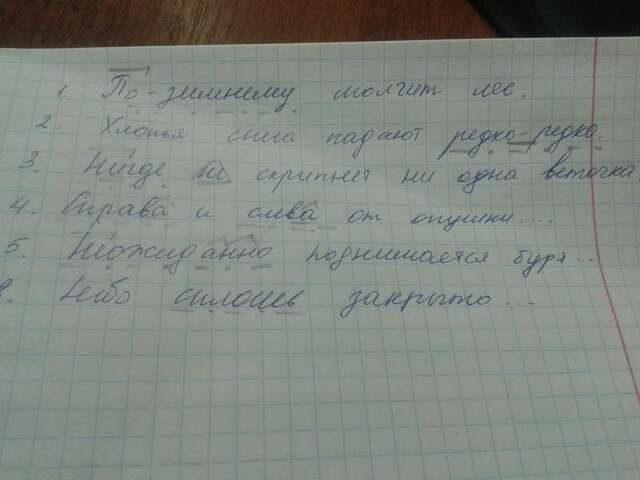 1. По-зимнему молчит лес.
2. Хлопья снега падают редко-редко.
3. Нигде не скрипнет ни одна веточка
4. Справа и слева от опушки....
5. Неожиданно поднимается буря...
Небо сплошь закрыто...